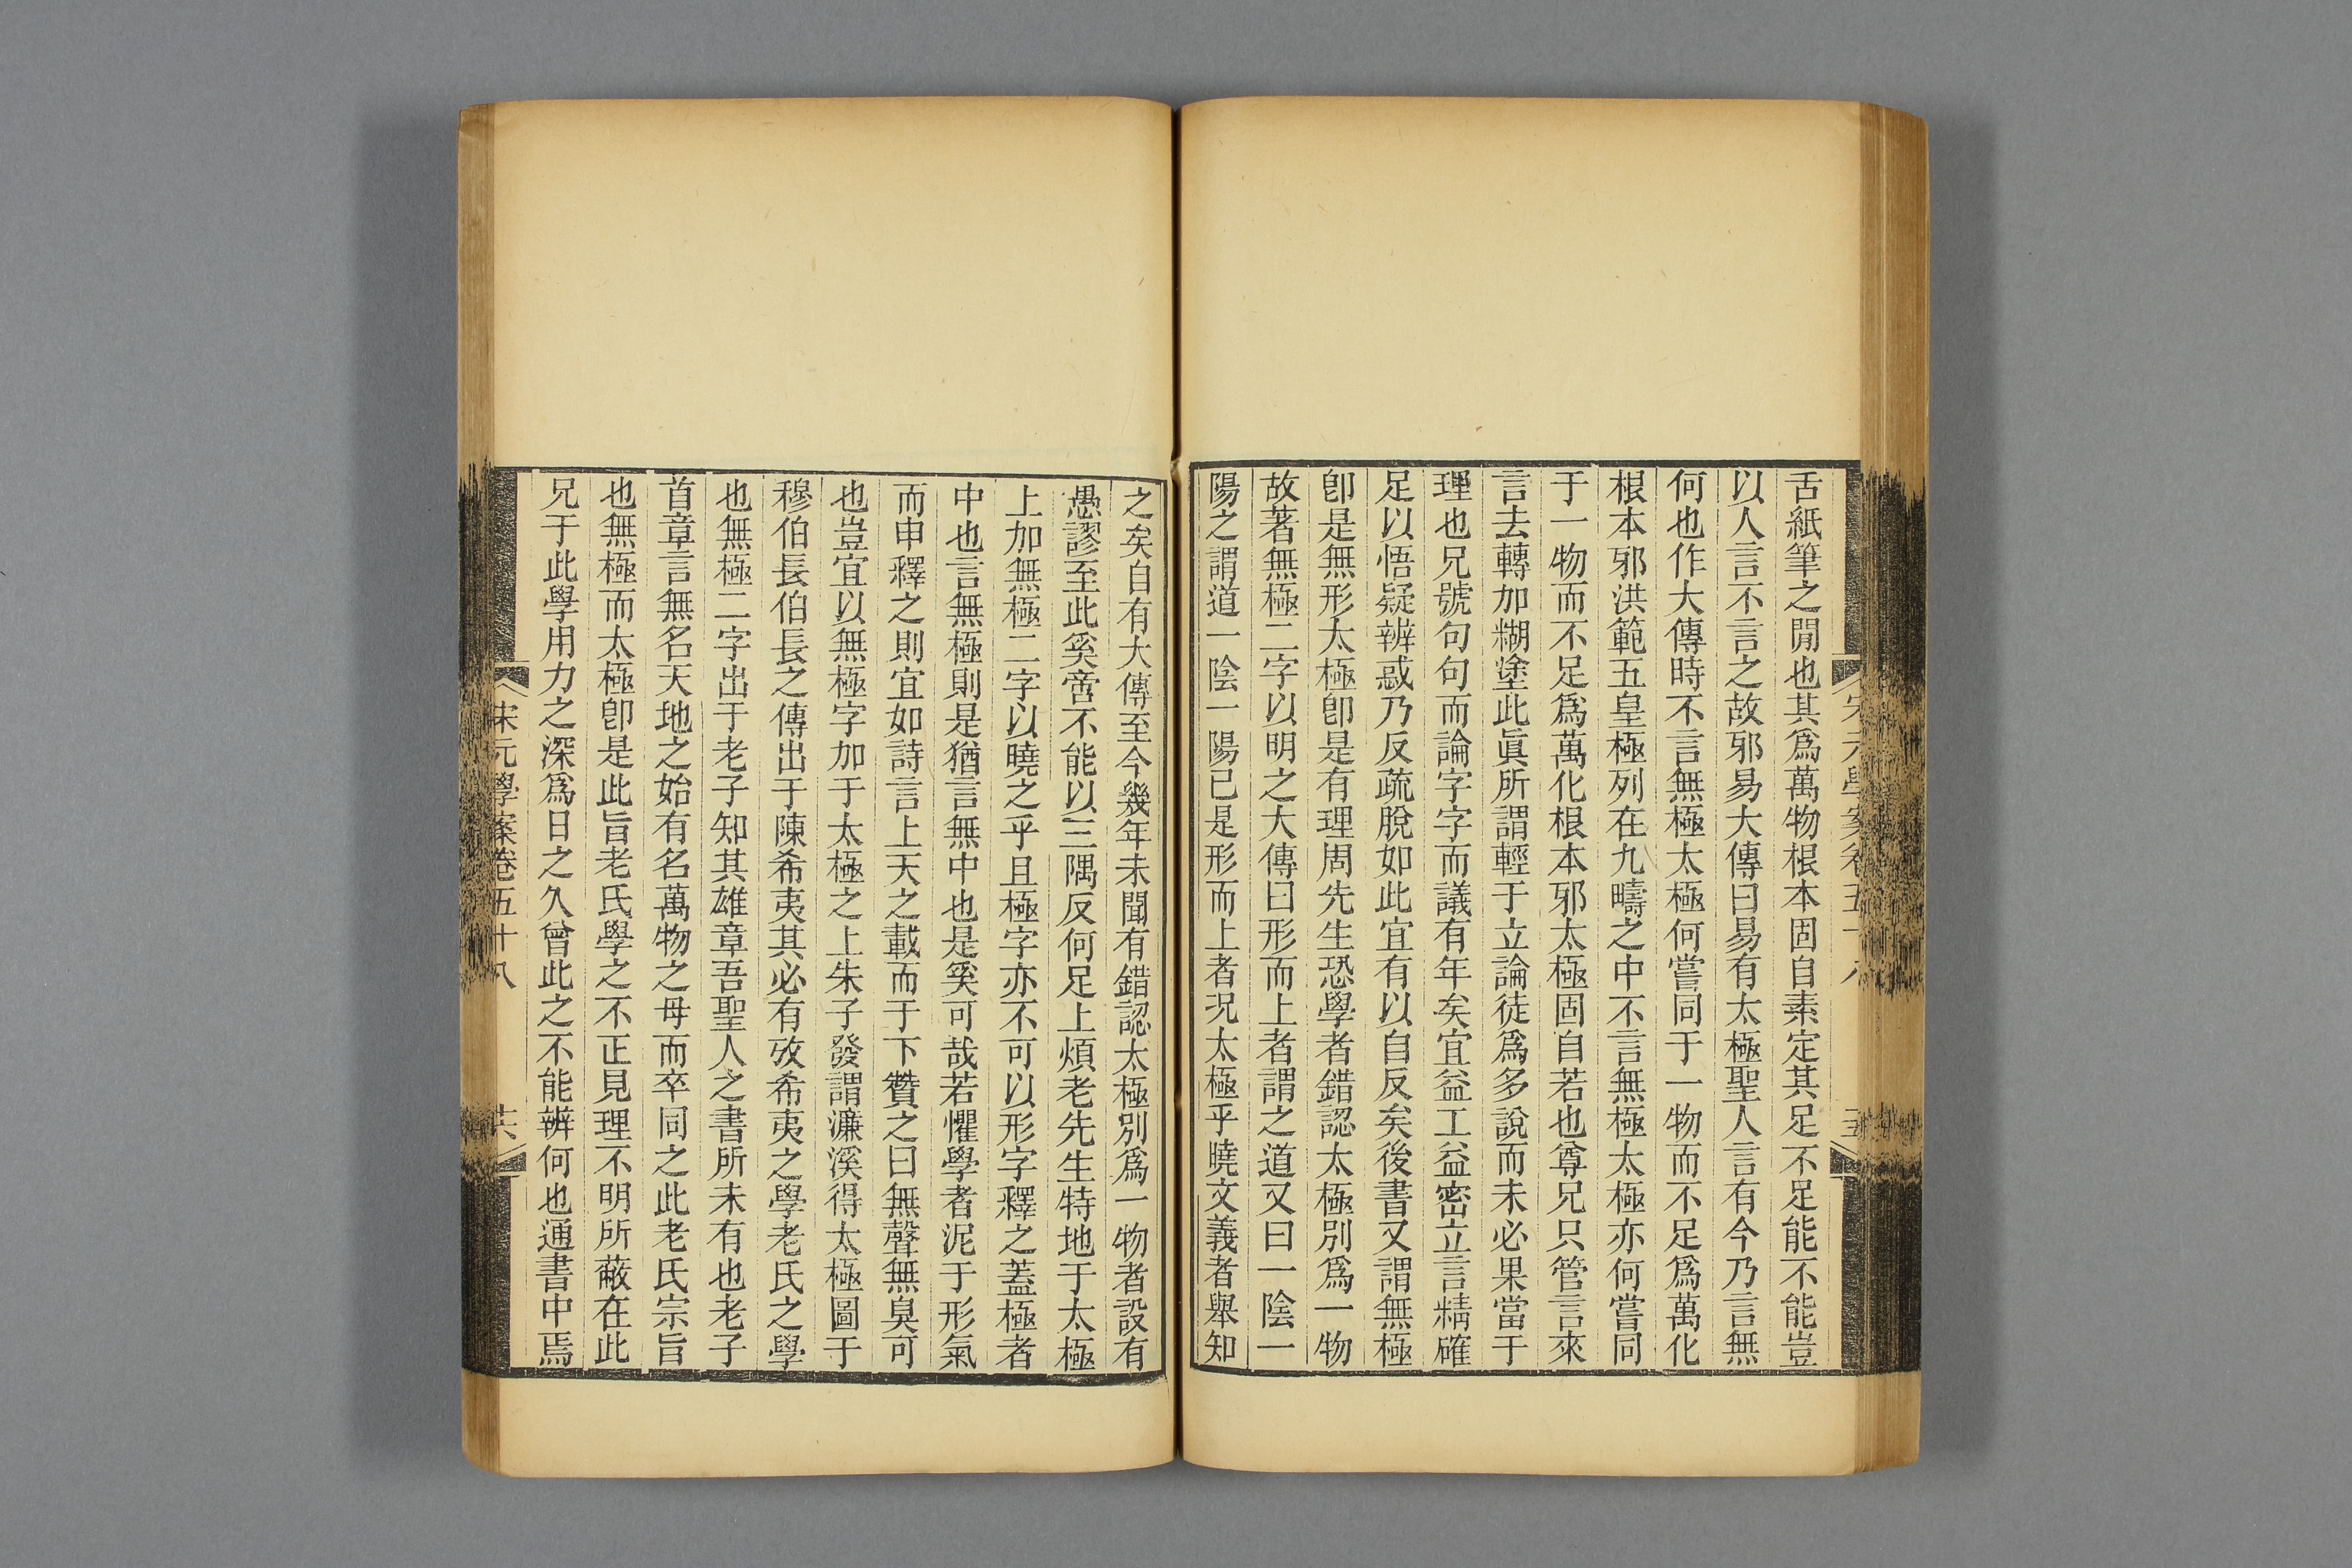 舌紙筆之閒也其爲萬物根本固自素定其足不足能不能豈
以人言不言之故邪易大傳曰易有太極聖人言有今乃言無
何也作大傳時不言無極太極何嘗同于一物而不足爲萬化
根本邪洪範五皇極列在九疇之中不言無極太極亦何嘗同
于一物而不足爲萬化根本邪太極固自若也尊兄只管言來
言去轉加糊塗此眞所謂輕于立論徒爲多說而未必果當于
理也兄號句句而論字字而議有年矣宜益工益密立言精確
足以悟疑辨惑乃反疏脫如此宜有以自反矣後書又謂無極
卽是無形太極卽是有理周先生恐學者錯認太極別爲一物
故著無極二字以明之大傳曰形而上者謂之道又曰一陰一
陽之謂道一陰一陽已是形而上者況太極乎曉文義者舉知
之矣自有大傳至今幾年未聞有錯認太極別爲一物者設有
愚謬至此奚啻不能以三隅反何足上煩老先生特地于太極
上加無極二字以曉之乎且極字亦不可以形字釋之蓋極者
中也言無極則是猶言無中也是奚可哉若懼學者泥于形氣
而申釋之則宜如詩言上天之載而于下贊之曰無聲無臭可
也豈宜以無極字加于太極之上朱子發謂濂溪得太極圖于
穆伯長伯長之傳出于陳希夷其必有攷希夷之學老氏之學
也無極二字出于老子知其雄章吾聖人之書所未有也老子
首章言無名天地之始有名萬物之母而卒同之此老氏宗旨
也無極而太極卽是此旨老氏學之不正見理不明所蔽在此
兄于此學用力之深爲日之久曾此之不能辨何也通書中焉
宋元學案卷五十八